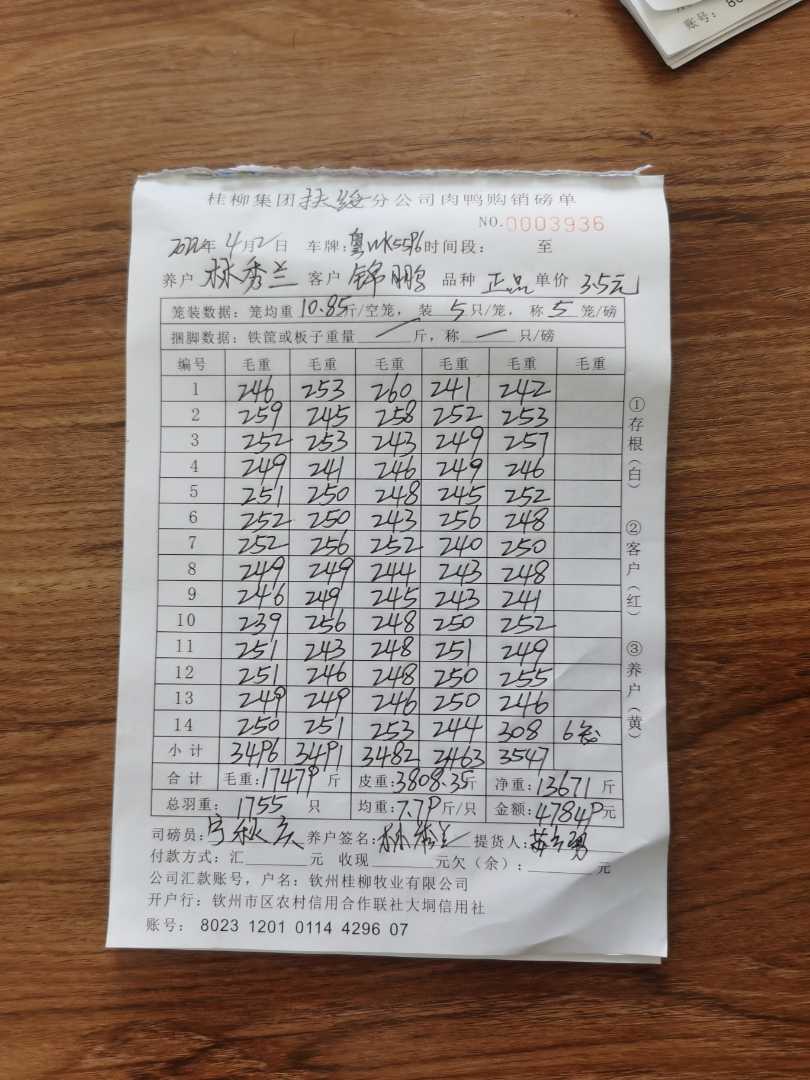 账号: 80
桂柳集团扶绥分公司肉鸭购销磅单
NO.0003936
2022年4月2日 车牌:粤WK5596时间段: 至
养户 林秀兰 客户 锦鹏 品种 正品 单价 3.5元
笼装数据:笼均重10.85斤/空笼,装5只/笼,称5笼/磅
捆脚数据:铁筐或板子重量 / 斤,称 一 只/磅
编号 毛重 毛重 毛重 毛重 毛重 毛重
1 246 253 260 241 242
2 259 245 258 252 253
3 252 253 243 249 257
4 249 241 246 249 246
5 251 250 248 245 252
6 252 250 243 256 248
7 252 256 252 240 250
8 249 249 244 243 248
9 246 249 245 243 241
10 239 256 248 250 252
11 251 243 248 251 249
12 251 246 248 250 255
13 249 249 246 250 246
14 250 251 253 244 308 6笼
小计 3496 3491 3482 3463 3547
合计 毛重:17479斤 皮重:3808.35斤 净重:13671斤
总羽重: 1755 只 均重:7.79斤/只 金额:47849元
司磅员: 养户签名:林秀兰 提货人:
付款方式:汇 元 收现 元欠(余): 元
公司汇款账号,户名:钦州桂柳牧业有限公司
开户行:钦州市区农村信用合作联社大垌信用社
账号: 8023 1201 0114 4296 07
①存根(白) ②客户(红) ③养户(黄)